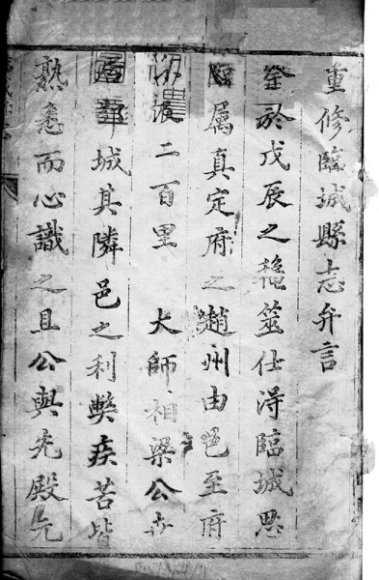 重修臨城縣志弁言
余於戊辰之秋筮仕得臨城思
臨属真定府之趙州由邑至府
二百里大師相梁公世
居鄴城其隣邑之利弊疾苦皆
熟悉而心識之且公與先殿元